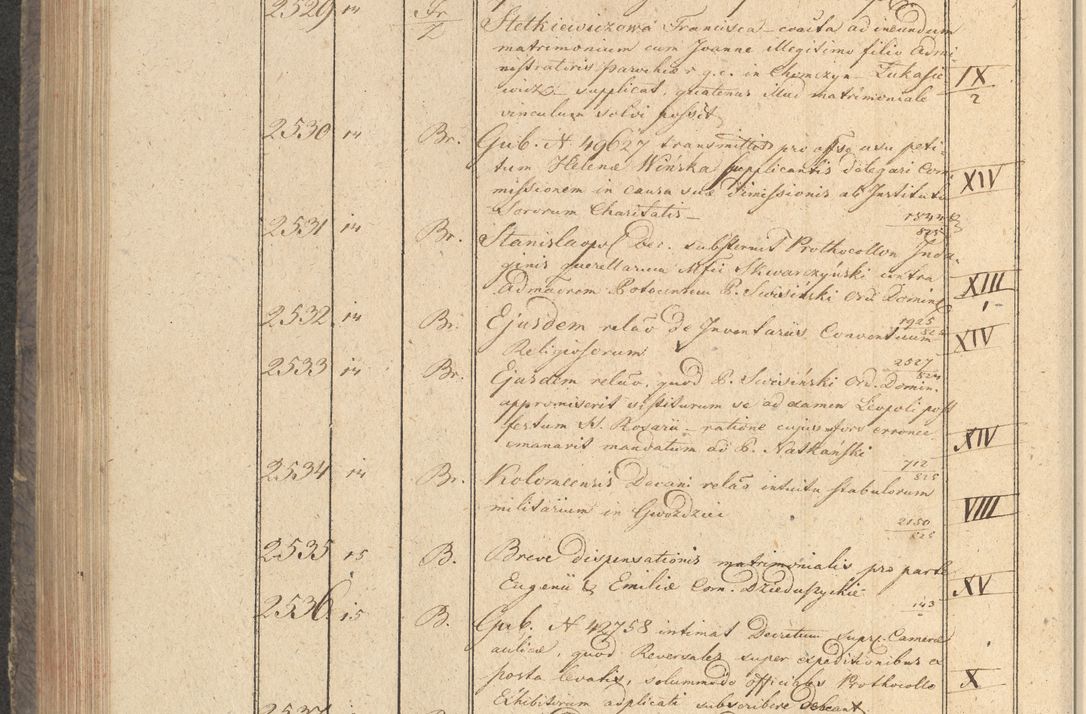 2529 14 Fr/Z Stetkiewiczowa Francisca coacta ad ineundum
matrimonium cum Joanne illegitimo filio Admi-
nistratoris parochiae g.c. in Chomczyn Łukasie- IX
wicz supplicat, quatenus illud matrimoniale 2
vinculum solvi possit
2530 14 Br. Gub. N 49627 transmittit pro usu peti-
tum Helenae Wińska supplicantis delegari Com- XIV
missionem in causa sua dimissionis ab Instituto
Sororum Charitatis
825
2531 14 Br. Stanislaopol Dec. substernit Prothocollon Inda-
ginis querellarum Skwarczyński contra XIII
Admodum Potocensem P. Swisiński Ord. Domini
1925
2532 14 Br. Ejusdem relāo de Inventariis Conventuum XIV
Religiosorum
2527
824
2533 14 Br. Ejusdem relāo, quod P. Swisiński Ord. Domin.
appromiserit sistiturum se ad examen Leopoli post
festum S. Rosarii ratione cujus fors erronee XIV
emanavit mandatum ad P. Natkański
712
825
2534 14 Br. Kolomeensis Decani relāo intuitu stabulorum
militarium in Gwoździec VIII
2150
825
2535 15 B. Breve dispensationis matrimonialis pro parte
Eugenii & Emiliae Com. Dzieduszyckie XV
143
2536 15 B. Gub. N 42758 intimat Decretum supr. Camerae
aulicae, quod Reversales super expeditionibus e
posta levatis, solummodo officiales Prothocollo X
Exhibitorum adplicati subscribere debeant